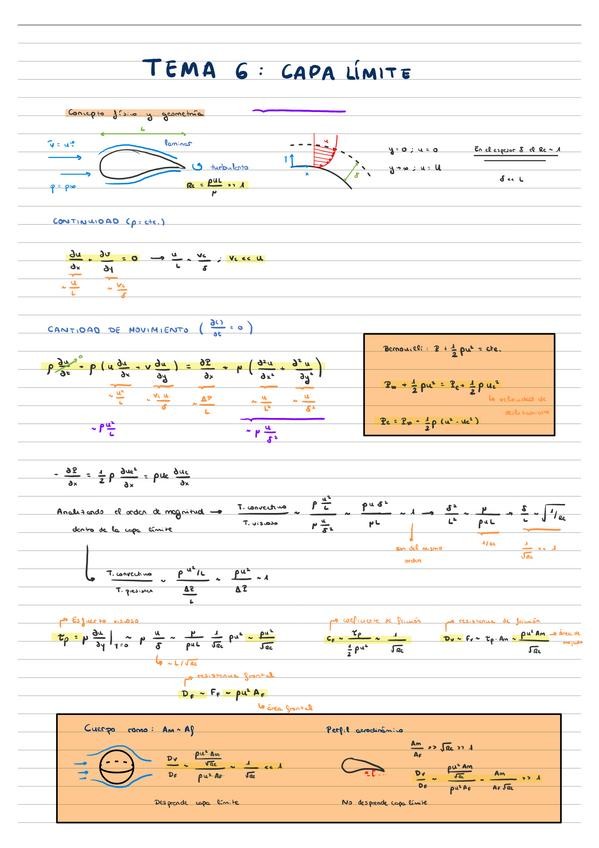 TEMA 6: CAPA LÍMITE
Concepto físico y geometría
L
laminar
turbulento
Re = ρuL/μ >> 1
y=0; u=0
y→∞; u=U
En el espesor δ el Re ~ 1
δ << L
CONTINUIDAD (ρ=cte.)
∂u/∂x + ∂v/∂y = 0 → u/L ~ vc/δ ; vc << u
~ u/L ~ vc/δ
CANTIDAD DE MOVIMIENTO (∂()/∂t = 0)
ρ ∂u/∂t + ρ (u ∂u/∂x + v ∂u/∂y) = ∂P/∂x + μ (∂²u/∂x² + ∂²u/∂y²)
~ u²/L ~ vc u/δ ~ ΔP/L ~ u/L² ~ u/δ²
~ ρu²/L ~ μ u/δ²
Bernouilli: P + 1/2 ρu² = cte.
P∞ + 1/2 ρu² = Pe + 1/2 ρ ue²
Pe = P∞ + 1/2 ρ (u² - ue²)
- ∂P/∂x = 1/2 ρ ∂ue²/∂x = ρue ∂ue/∂x
Analizando el orden de magnitud → T. convectivo / T. viscoso ~ ρ u²/L / μ u/δ² ~ ρuδ²/μL ~ 1 → δ²/L² ~ μ/ρuL → δ/L ~ √1/Re
dentro de la capa límite
son del mismo orden
1/Re
1/√Re << 1
T. convectivo / T. presione ~ ρu²/L / ΔP/L ~ ρu²/ΔP ~ 1
Esfuerzo viscoso
τp = μ ∂u/∂y | y=0 ~ μ u/δ ~ μ/ρuL 1/√Re ρu² ~ ρu²/√Re
~ L/√Re
coeficiente de fricción
Cf ~ τp / 1/2 ρu² ~ 1/√Re
resistencia de fricción
Dv ~ Fv ~ τp · Am ~ ρu² Am/√Re → área de
resistencia frontal
DF ~ FF ~ ρu² AF
área frontal
Cuerpo romo: Am ~ Af
Dv/DF ~ ρu² Am/√Re / ρu² AF ~ 1/√Re << 1
Desprende capa límite
Perfil aerodinámico
Am/AF >> √Re >> 1
Dv/DF ~ ρu² Am/√Re / ρu² AF ~ Am/AF √Re >> 1
No desprende capa límite